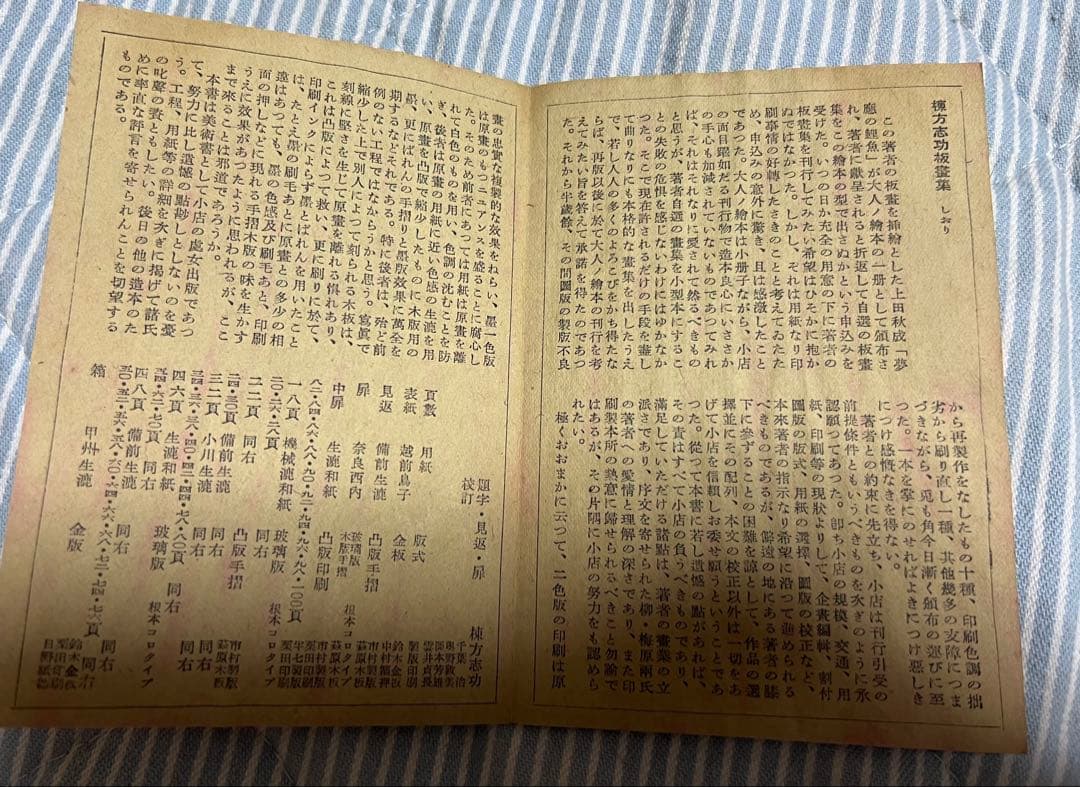 棟方志功板畫集　しおり
この著者の板畫を挿繪とした上田秋成「夢
應の鯉魚」が大人ノ繪本の一册として頒布さ
れ、著者に獻呈されると折返して自選の板畫
集をこの繪本の型で出さぬかという申込みを
受けた。いつの日か充全の用意の下に著者の
板畫集を刊行してみたい希望はひそかに抱か
ぬではなかつた。しかし、それは用紙なり印
刷事情の好轉したときのことと考えてゐたた
め、申込みの意外に驚き、且は感激したこと
であつた。大人ノ繪本は小册子ながら、小店
の面目躍如だる刊行物で造本良心にいささか
の手心も加減されていないものであつてみれ
ば、それはそれなりに愛されて然るべきもの
と思うが、著者自選の畫集を小型本にするこ
との失敗の危惧を感じないわけにはゆかなか
つた。そこで現在許されるだけの手段を盡し
て曲りなりにも本格的な畫集を出したうえ
で、若し人人の多くのよろこびをかち得たな
らば、再版以後に於て大人ノ繪本の刊行を考
えてみたい旨を答えて承諾を得たのであつ
た。それから半歳餘、その間圖版の製版不良
から再製作をなしたもの十種、印刷色調の拙
劣から刷り直し一種、其他幾多の支障につま
づきながら、兎も角今日漸く頒布の運びに至
つた。一本を掌にのせればよきにつけ惡しき
につけ感慨なきを得ない。
著者との約束に先立ち、小店は刊行引受の
前提條件ともいうべきものを次ぎのように承
認願つてあつた。卽ち小店の規模、交通、用
紙、印刷等の現狀よりして、企畫編輯、割付
圖版の版式、用紙の選擇、圖版の校正など、
本來著者の指示なり希望に沿つて進められる
べきものであるが、遼遠の地にある著者の膝
下に參ずることの困難を諒として、作品の選
擇並にその配列、本文の校正以外は一切をあ
げて小店を信賴しお委せ願うということであ
つた。從つて本書に若し遺憾の點があれば、
その責はすべて小店の負うべきものであり、
滿足していただける諸點は、著者の畫業の立
派さであり、序文を寄せられた柳・梅原兩氏
の著者への愛情と理解の深さであり、また印
刷製本所の熱意に歸せられるべきこと勿論で
はあるが、その片隅に小店の努力をも認めら
れたい。
極くおおまかに云つて、二色版の印刷は原
畫の忠實な複製的な效果をねらい、墨一色版
は原畫のもつニュアンスを盛ることに腐心し
た。そのため前者にあつては用紙は原畫を離
れて白色のものを用い、色調の沈むことを防
ぎ、後者は原畫の用紙に近い色感の生漉を用
い、原畫を凸版で縮少したものに木版用の
墨、更にばれんの手摺りと墨版效果に萬全を
期するなどそれである。特に後者は、殆ど前
例のない工程ではなからうかと思う。寫眞で
縮少した上で別人によつて刻られる木板は、
刻線に堅さを生じ原畫を離れる惧れあり、
これは凸版によつて救い、更に刷りに於て、
印刷インクによらず墨とばれんを用いたこと
は、たとえ墨の刷毛あとに原畫との多少の相
違はあつても、墨の色感及び刷毛あと、印刷
面の押しなどに現れる手摺木版の味を生かす
うえに效果があつたように思われるが、ここ
まで來ることは邪道であろうか。
本書は美術書として小店の處女出版であつ
て、努力に比し遺憾の點尠しとしないのを憂
う。工程、用紙等の詳細を次ぎに掲げて諸氏
の叱聲の資ともしたい。後日の他の造本のた
めに率直な評言を寄せられんことを切望する
ものである。
題字・見返・扉　棟方志功
校訂
頁數　用紙　版式
表紙　越前鳥子　金板　鈴木金版
見返　備前生漉　凸版手摺　市村製版
扉　奈良西内
中扉　生漉和紙　凸版印刷　市村製版
八二・八四・八六・八八・九〇・九二・九四・九六・九八・一〇〇頁
一八頁　機械漉和紙　玻璃版
二〇・二六・二八頁
二二頁　同右　凸版手摺　市村製版
二四・三〇頁　備前生漉　同右
三二頁　小川生漉　同右　同右
四六頁　生漉和紙　同右
四八頁　同右　玻璃版
箱　甲州生漉　金版